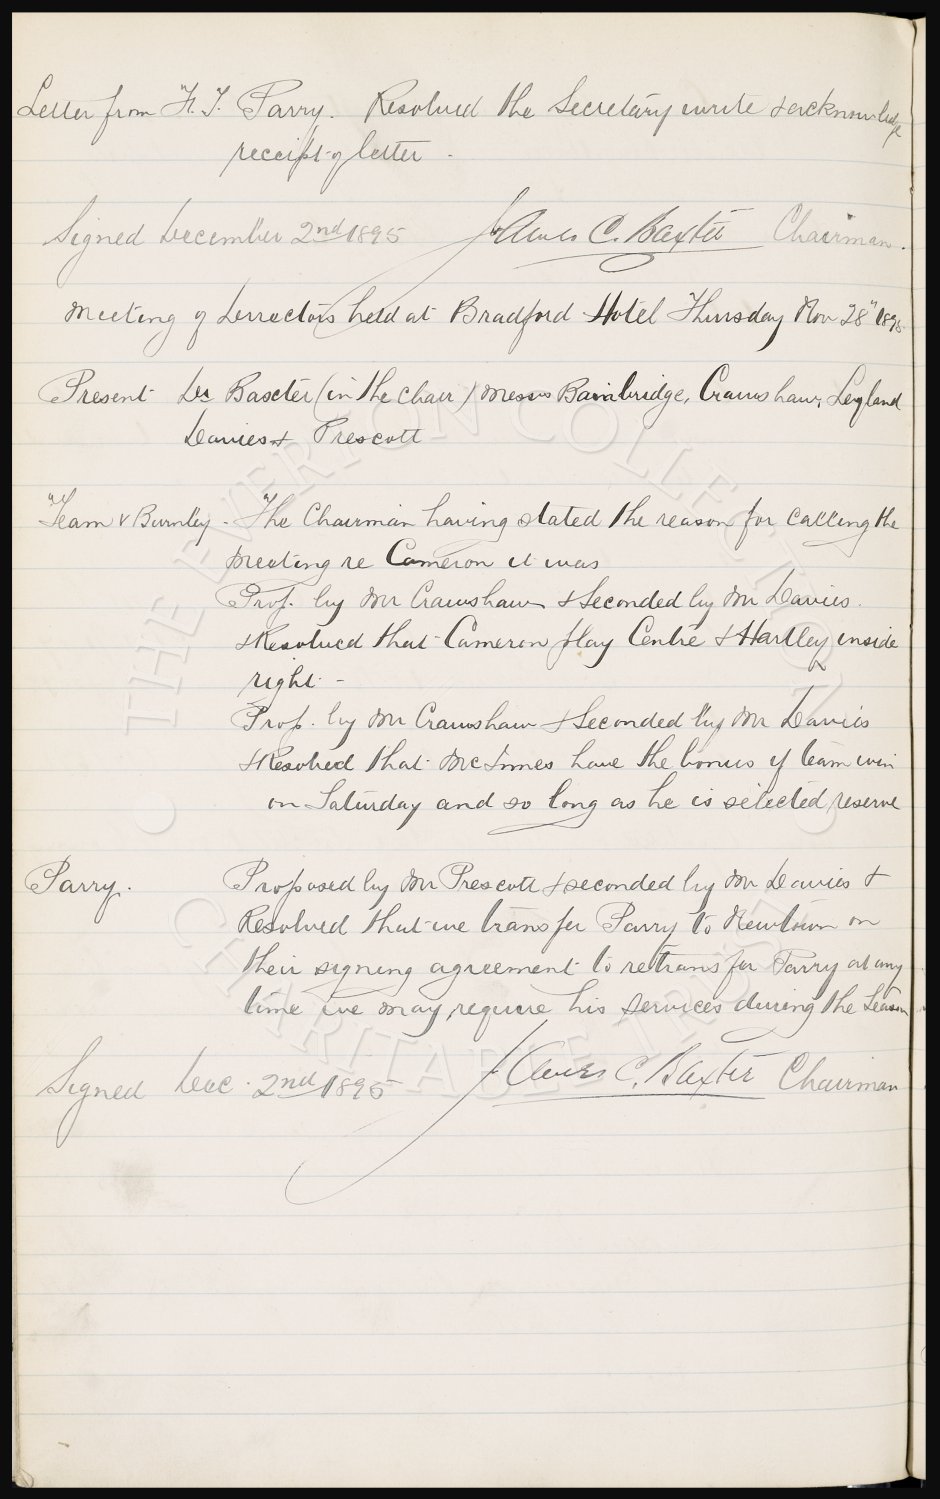 Letter from F. T. Parry. Resolved the Secretary write & acknowledge
receipt of letter.
Signed December 2nd 1895 James C. Baxter Chairman.
Meeting of Directors held at Bradford Hotel Thursday Nov 28" 1895
Present Dr Baxter (in the chair) Messrs Bainbridge, Crawshaw, Leyland
Davies & Prescott
Team v Burnley - The Chairman having stated the reason for calling the
meeting re Cameron it was
Prop. by Mr Crawshaw & Seconded by Mr Davies.
& Resolved that Cameron play Centre & Hartley inside
right -
Prop. by Mr Crawshaw & Seconded by Mr Davies
& Resolved that McInnes have the bonus if team win
on Saturday and so long as he is selected reserve
Parry. Proposed by Mr Prescott & seconded by Mr Davies &
Resolved that we transfer Parry to Newtown on
their signing agreement to retransfer Parry at any
time we may require his services during the Season
Signed Dec. 2nd 1895 James C. Baxter Chairman
THE EVERTON COLLECTION
CHARITABLE TRUST